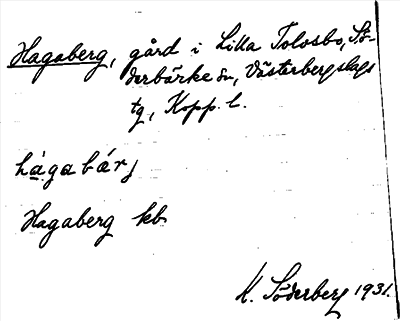 Hagaberg, gård i Lilla Tolosbo, Sö-
derbärke sn, Västerbergslags
tg, Kopp. l.
hагаbärj
Hagaberg kb
K. Söderberg 1931.